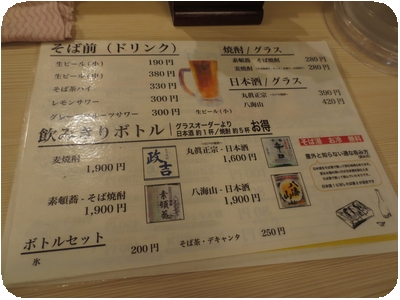 そば前（ドリンク）
生ビール（小） 190円
生ビール（中） 380円
そば茶ハイ 330円
レモンサワー 300円
グレープフルーツサワー 300円
生ビール（小）
焼酎/グラス
素頓蕎・そば焼酎 280円
麦焼酎 280円
日本酒/グラス
丸眞正宗 390円
八海山 420円
飲みきりボトル
グラスオーダーより
日本酒 約1杯/焼酎 約5杯 お得
麦焼酎
1,900円
政吉
丸眞正宗・日本酒
1,600円
素頓蕎・そば焼酎
1,900円
素頓蕎
八海山・日本酒
1,900円
八海山
そば湯 お湯 無料
意外と知らない通な呑み方
ボトルセット
氷 200円
そば茶・デキャンタ 250円